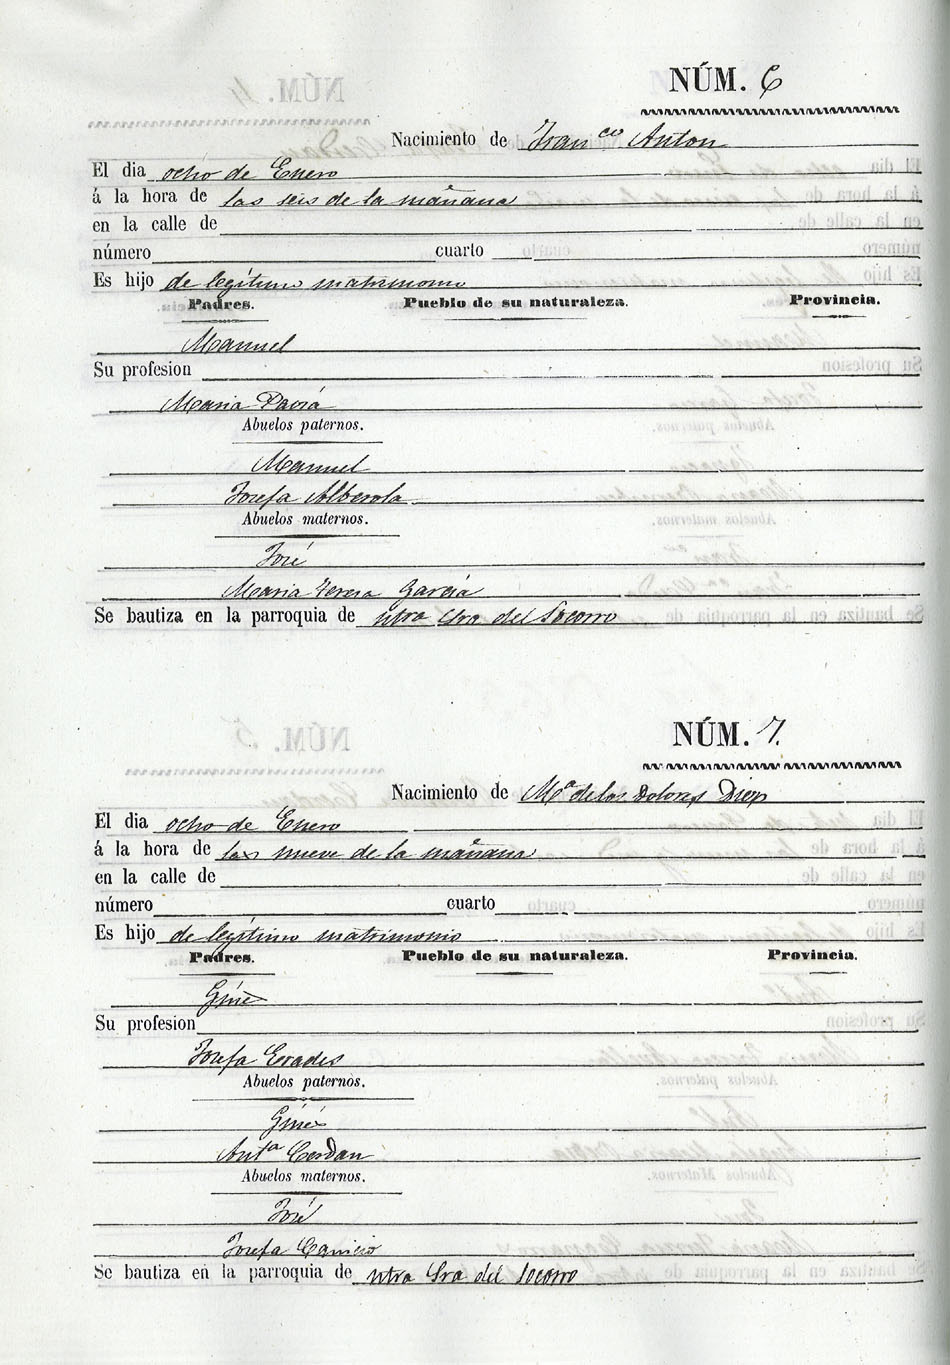 NÚM. 6
Nacimiento de Franco Anton
El dia ocho de Enero
á la hora de las seis de la mañana
en la calle de
número cuarto
Es hijo de legítimo matrimonio
Padres. Pueblo de su naturaleza. Provincia.
Manuel
Su profesion
Maria Paviá
Abuelos paternos.
Manuel
Josefa Alberola
Abuelos maternos.
José
Maria Teresa García
Se bautiza en la parroquia de ntra Sra del Socorro
NÚM. 7.
Nacimiento de Ma de los Dolores Diez
El dia ocho de Enero
á la hora de las nueve de la mañana
en la calle de
número cuarto
Es hijo de legítimo matrimonio
Padres. Pueblo de su naturaleza. Provincia.
Giné
Su profesion
Josefa Evades
Abuelos paternos.
Giné
Anta Cerdan
Abuelos maternos.
José
Josefa Canicio
Se bautiza en la parroquia de ntra Sra del Socorro